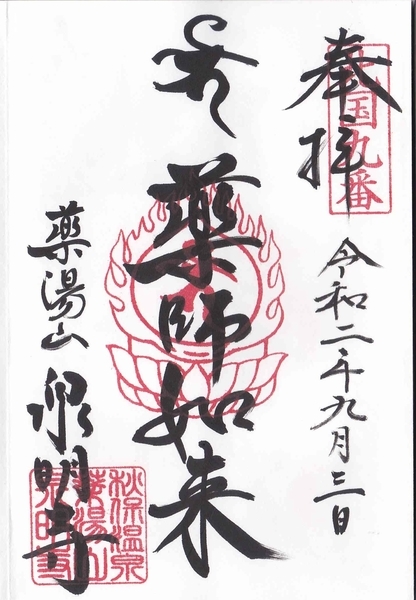 奉拝
国九番
令和二年九月三日
薬師如来
薬湯山
泉明寺
秋保温泉
薬湯山
泉明寺